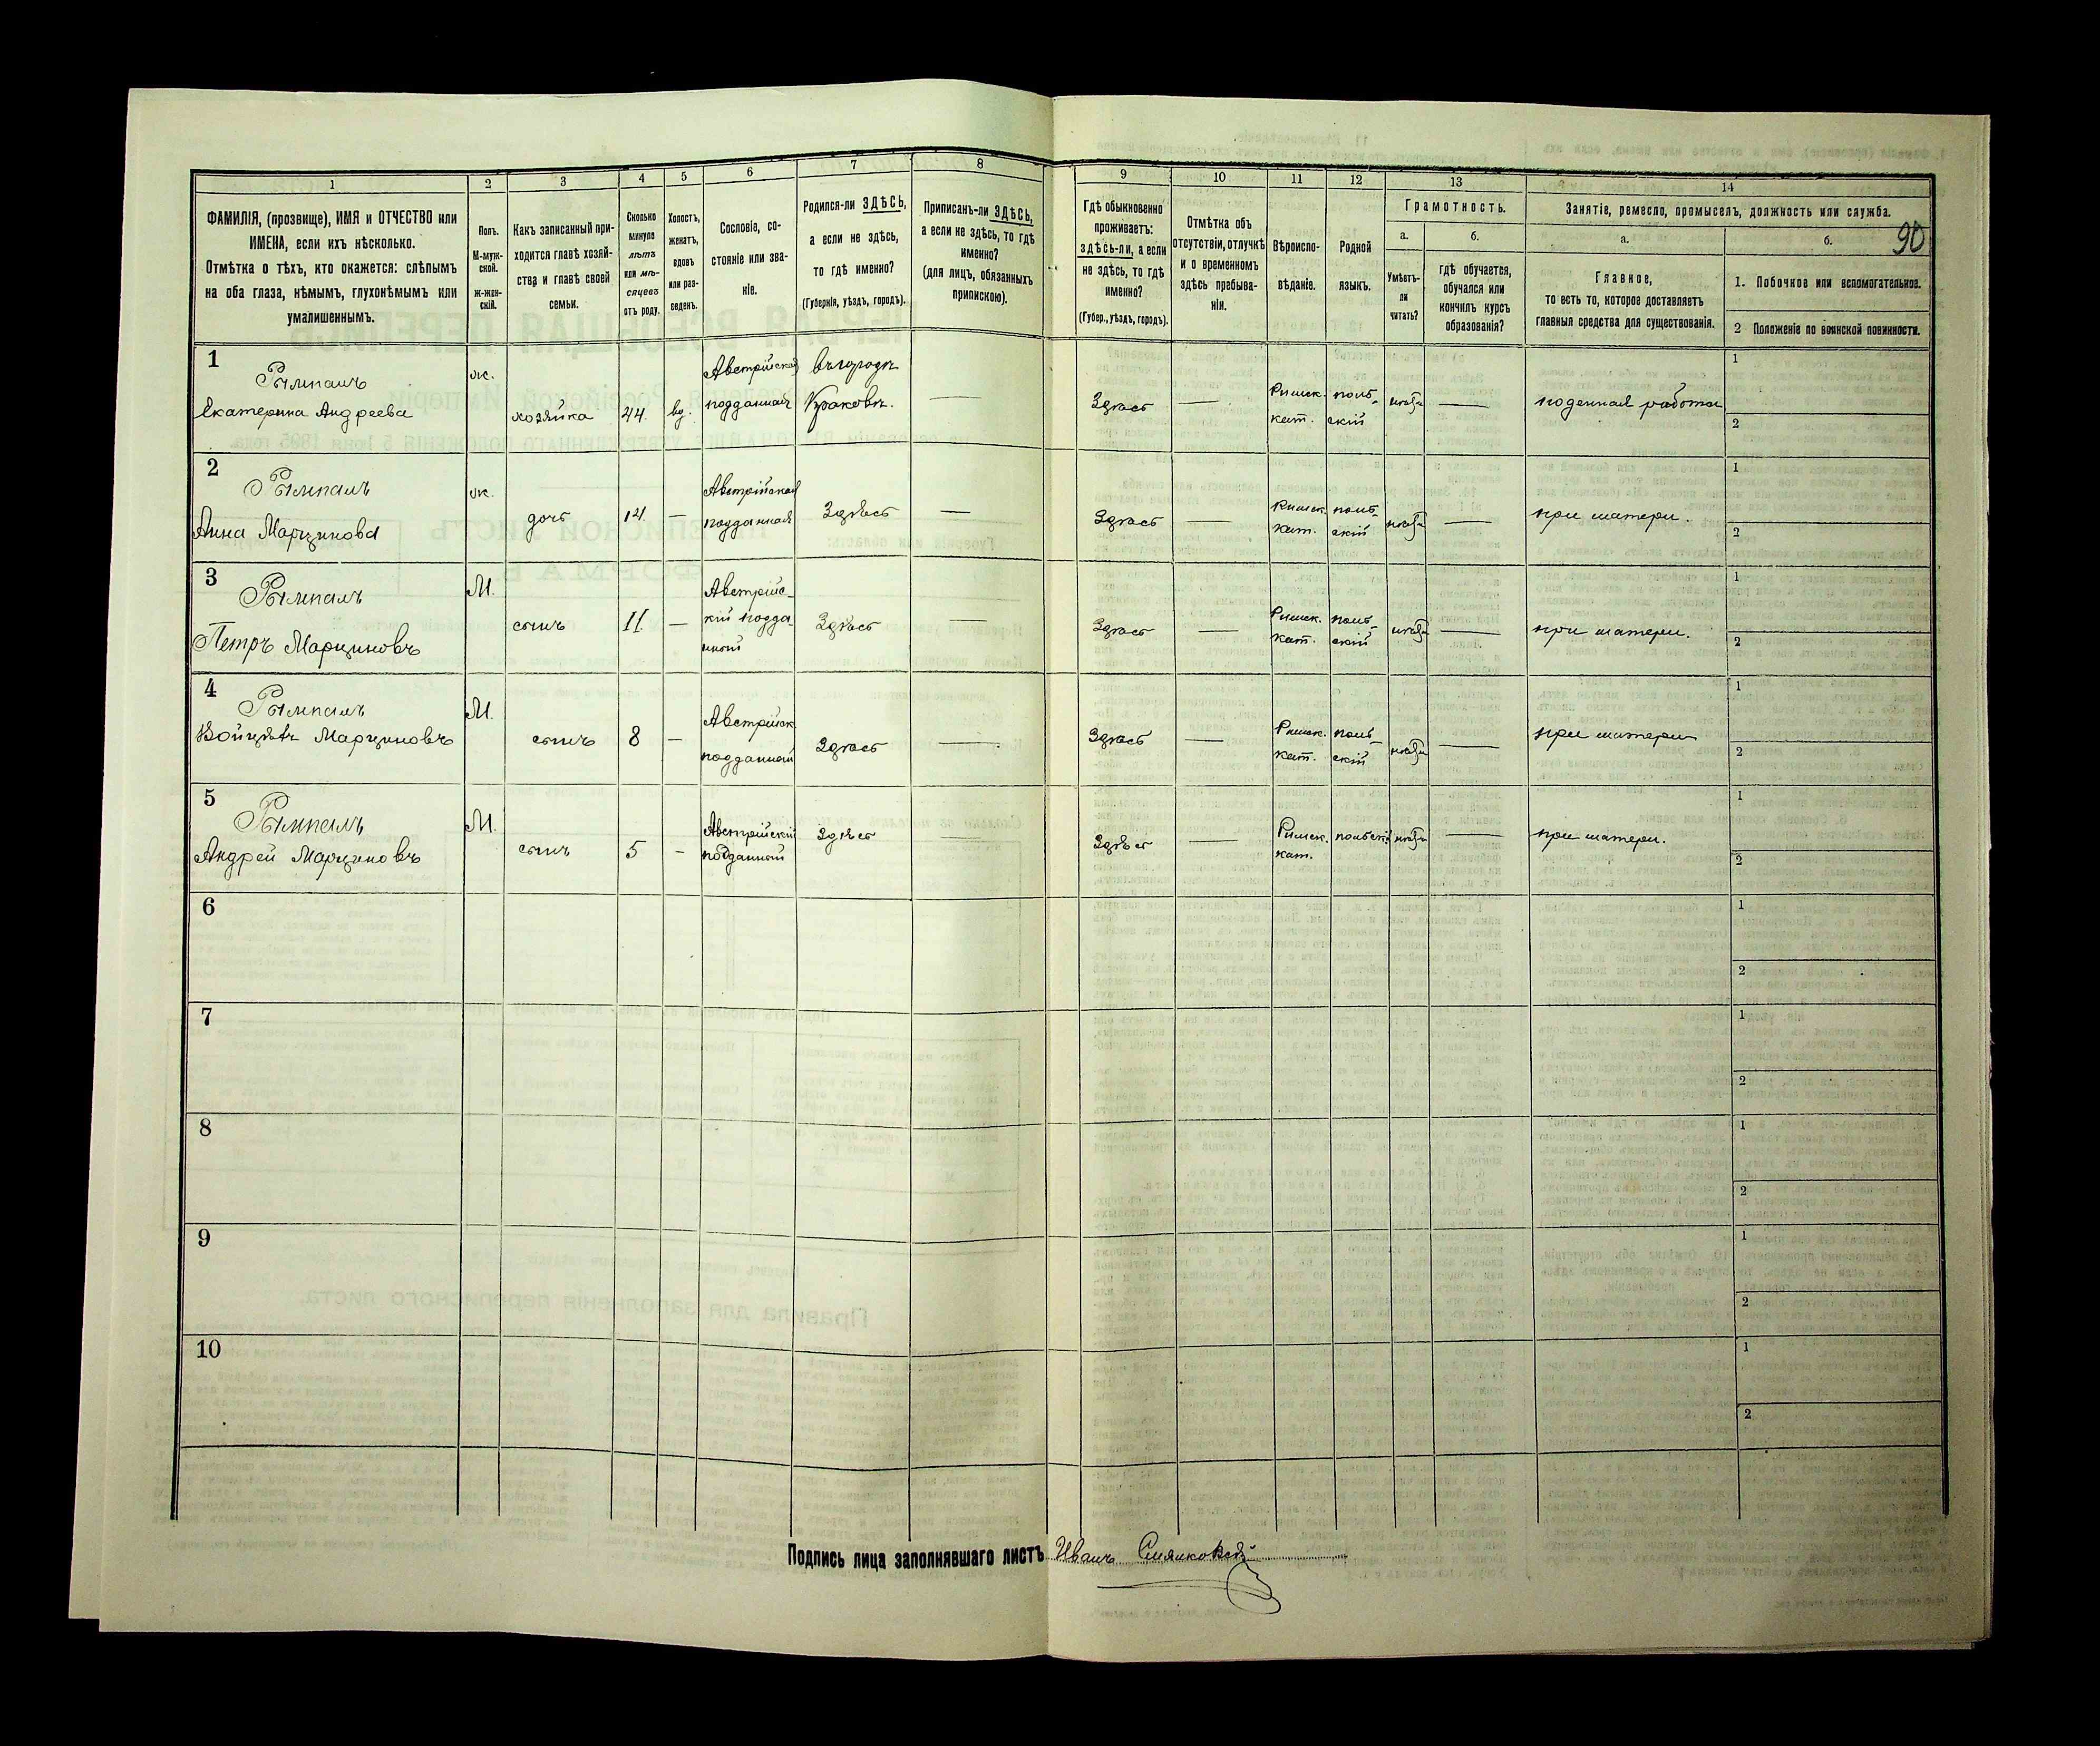 1 2 3 4 5 6 7 8 9 10 11 12 13 14
ФАМИЛІЯ, (прозвище), ИМЯ и ОТЧЕСТВО или
ИМЕНА, если ихъ нѣсколько.
Отмѣтка о тѣхъ, кто окажется: слѣпымъ
на оба глаза, нѣмымъ, глухонѣмымъ или
умалишеннымъ.
Полъ.
М-муж-
ской.
ж-жен-
скій.
Какъ записанный при-
ходится главѣ хозяй-
ства и главѣ своей
семьи.
Сколько
минуло
лѣтъ
или мѣ-
сяцевъ
отъ роду.
Холостъ,
женатъ,
вдовъ
или раз-
веденъ.
Сословіе, со-
стояніе или зва-
ніе.
Родился-ли ЗДѢСЬ,
а если не здѣсь,
то гдѣ именно?
(Губернія, уѣздъ, городъ).
Приписанъ-ли ЗДѢСЬ,
а если не здѣсь, то гдѣ
именно?
(для лицъ, обязанныхъ
припискою).
Гдѣ обыкновенно
проживаетъ:
здѣсь-ли, а если
не здѣсь, то гдѣ
именно?
(Губер., уѣздъ, городъ).
Отмѣтка объ
отсутствіи, отлучкѣ
и о временномъ
здѣсь пребыва-
ніи.
Вѣроиспо-
вѣданіе.
Родной
языкъ.
Грамотность.
а.
Умѣетъ-
ли
читать?
б.
гдѣ обучается,
обучался или
кончилъ курсъ
образованія?
Занятіе, ремесло, промыселъ, должность или служба.
90
а.
Главное,
то есть то, которое доставляетъ
главныя средства для существованія.
б.
1. Побочное или вспомогательное.
2 Положеніе по воинской повинности.
1
Рымпалъ
Екатерина Андреева
ж.
хозяйка
44.
вд.
Австрійская
подданная
въ городѣ
Краковѣ.
—
Здѣсь
—
Римск.
кат.
поль-
скій
—
поденная работа
1
2
2
Рымпалъ
Анна Марцинова
ж.
дочь
14.
—
Австрійская
подданная
Здѣсь
—
Здѣсь
—
Римск.
кат.
поль-
скій
—
при матери.
1
2
3
Рымпалъ
Петръ Марциновъ
М.
сынъ
11.
—
Австрійс-
кій подда-
нный
Здѣсь
—
Здѣсь
—
Римск.
кат.
поль-
скій
—
при матери.
1
2
4
Рымпалъ
Войцѣхъ Марциновъ
М.
сынъ
8
—
Австрійск.
подданный
Здѣсь
—
Здѣсь
—
Римск.
кат.
поль-
скій
—
при матери
1
2
5
Рымпалъ
Андрей Марциновъ
М.
сынъ
5
—
Австрійскій
подданный
Здѣсь
—
Здѣсь
—
Римск.
кат.
польскій
—
при матери.
1
2
6
1
2
7
1
2
8
1
2
9
1
2
10
1
2
Подпись лица заполнявшаго листъ Иванъ